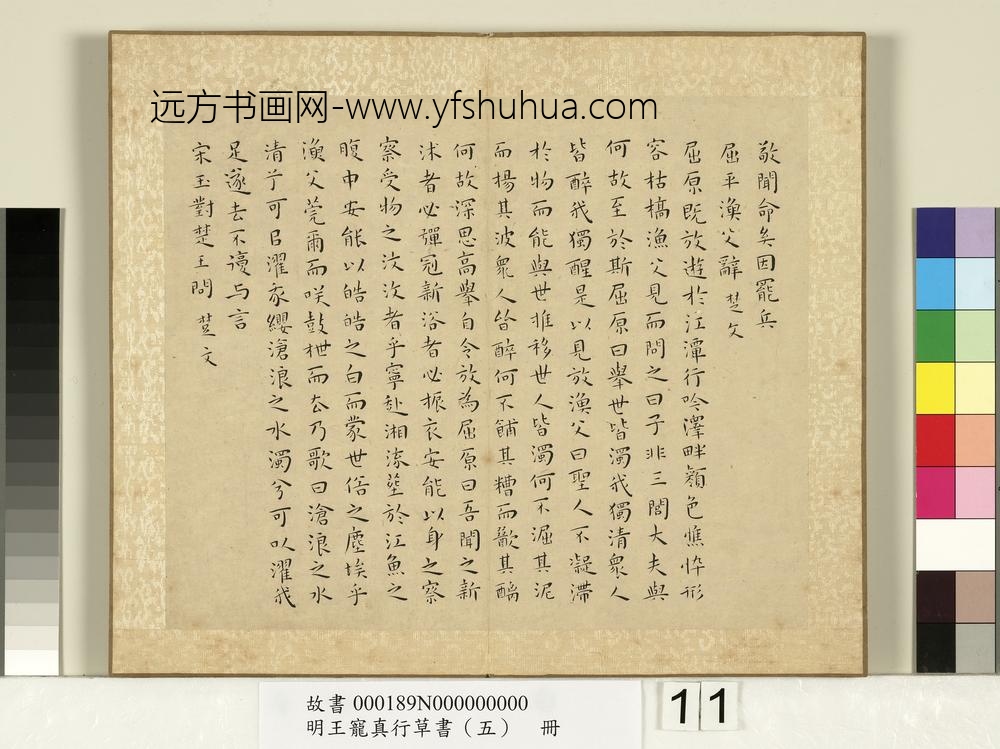 远方书画网-www.yfshuhua.com
敬聞命矣因罷兵
屈平漁父辭 楚文
屈原既放遊於江潭行吟澤畔顏色憔悴形
容枯槁漁父見而問之曰子非三閭大夫與
何故至於斯屈原曰舉世皆濁我獨清衆人
皆醉我獨醒是以見放漁父曰聖人不凝滯
於物而能與世推移世人皆濁何不淈其泥
而揚其波衆人皆醉何不餔其糟而歠其醨
何故深思高舉自令放為屈原曰吾聞之新
沐者必彈冠新浴者必振衣安能以身之察
察受物之汶汶者乎寧赴湘流塟於江魚之
腹中安能以皓皓之白而蒙世俗之塵埃乎
漁父莞爾而咲鼓枻而去乃歌曰滄浪之水
清兮可㠯濯我纓滄浪之水濁兮可以濯我
足遂去不復与言
宋玉對楚王問 楚文
故書 000189N000000000
明王寵真行草書（五） 冊
11